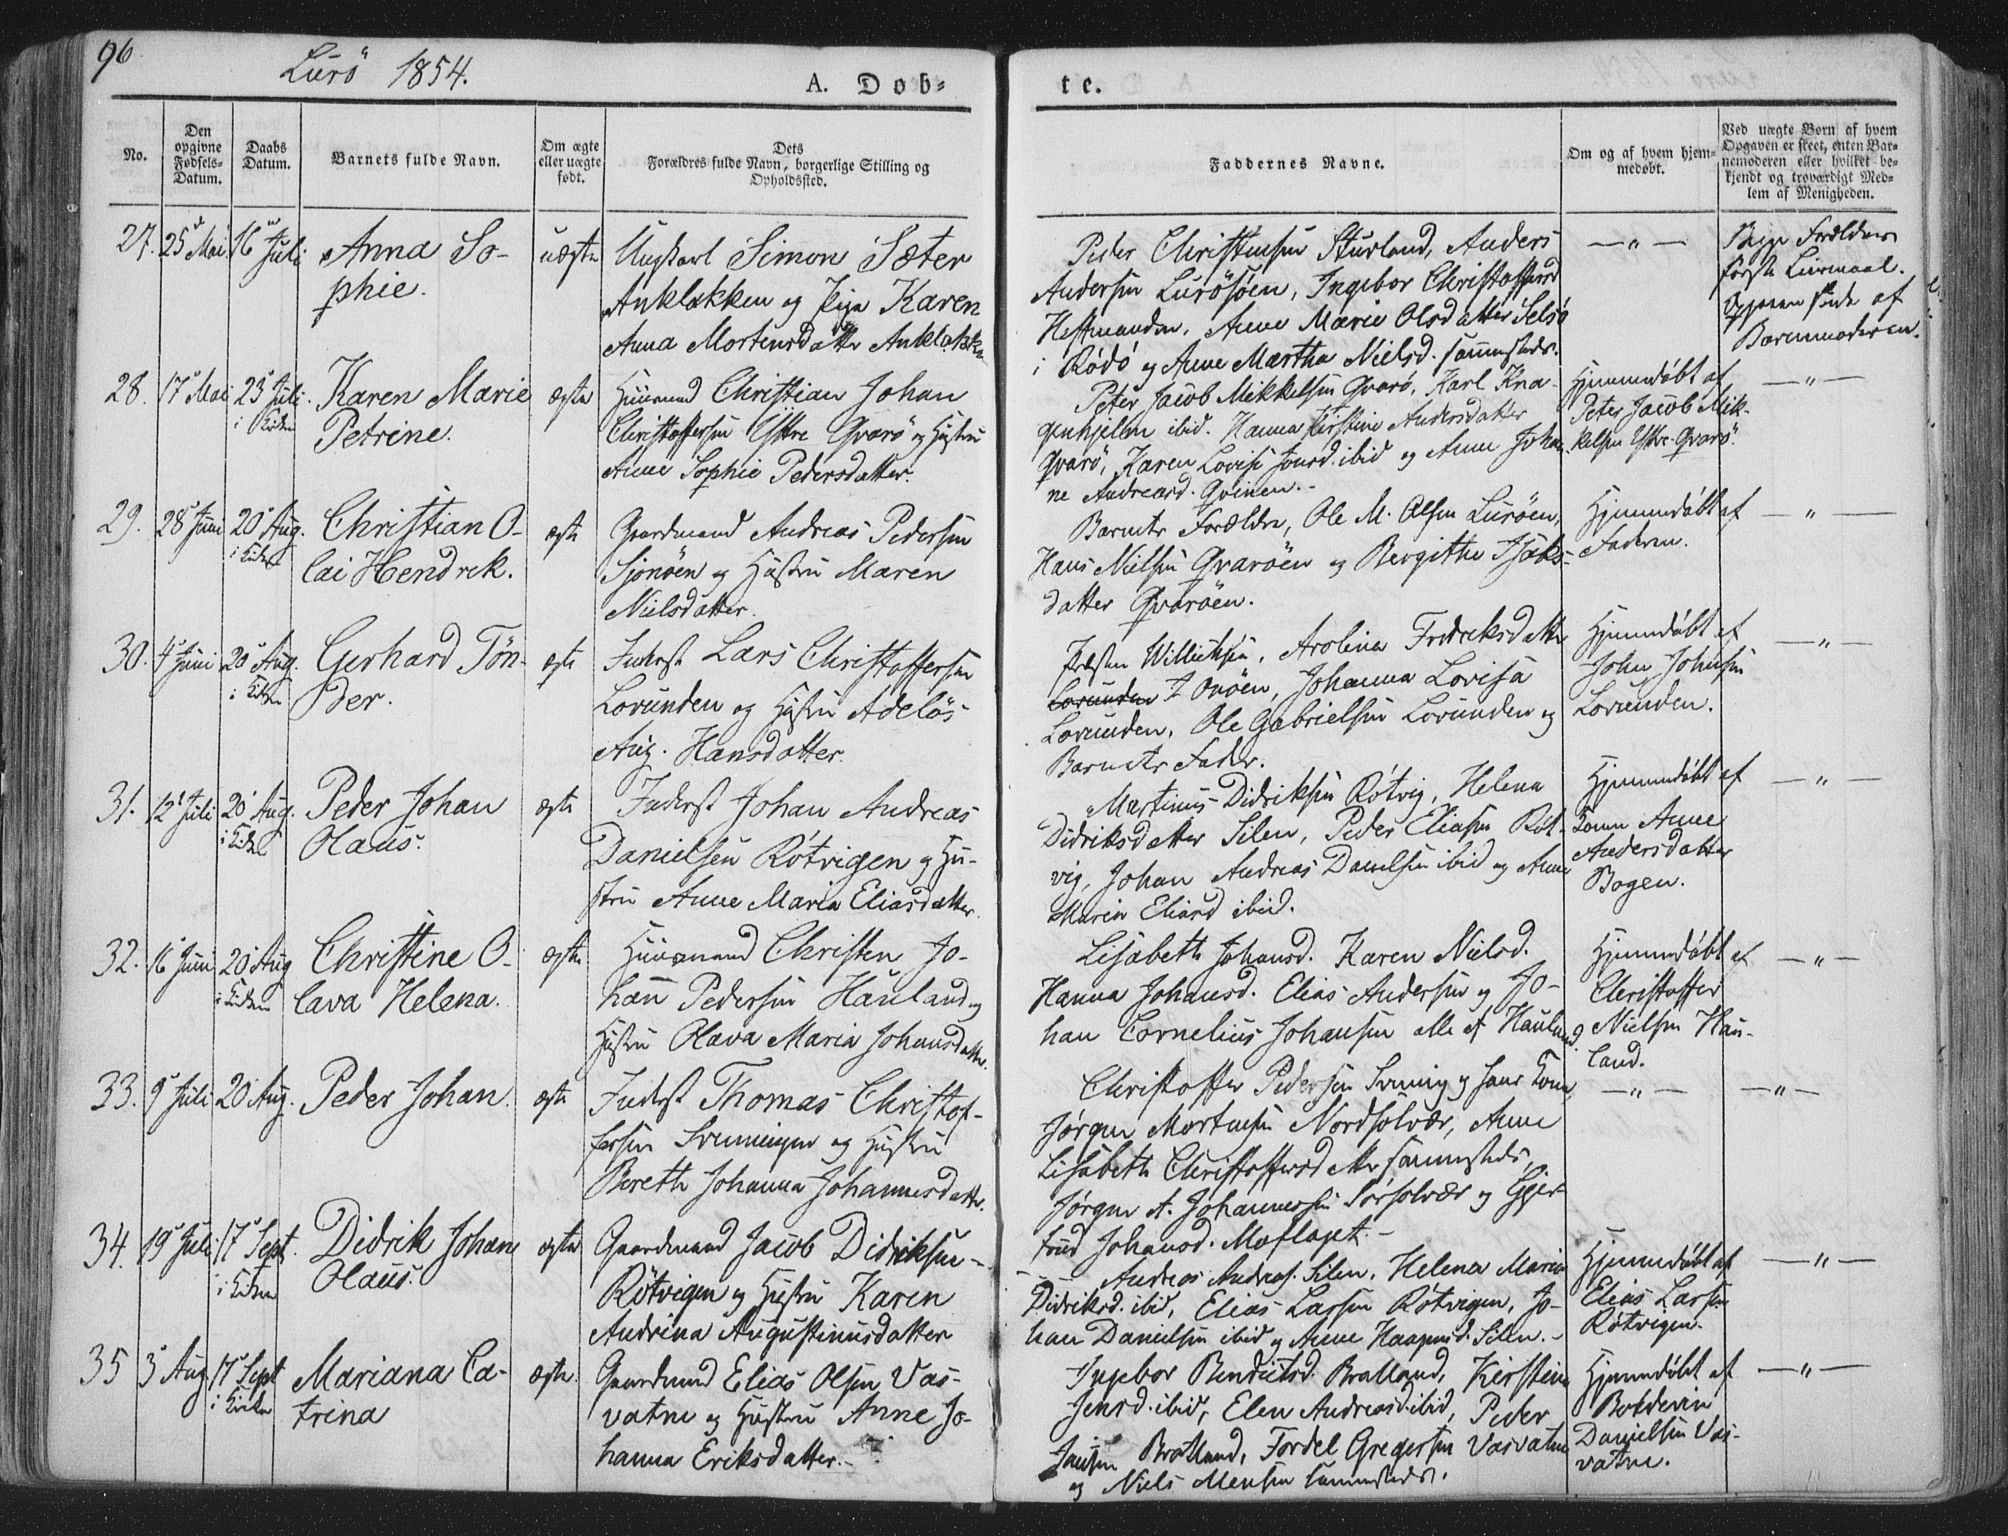 96
Lurö 1854.
A. Døb-
te.
No.
Den opgivne Fødsels-Datum.
Daabs Datum.
Barnets fulde Navn.
Om ægte eller uægte født.
Dets Forældres fulde Navn, borgerlige Stilling og Opholdssted.
Faddernes Navne.
Om og af hvem hjem-medøbt.
Ved uægte Børn af hvem Opgaven er skeet, enten Bar-nemoderen eller hvilket be-kjendt og troværdigt Med-lem af Menigheden.
27. 25 Mai 16 Juli Anna So-
phie.
uægte
Ungkarl Simon Sæter
Anklakken og Pige Karen
Anna Mortensdatter Anklakken
Peder Christensen Sturland, Anders
Andersen Lurösöen, Ingebor Christoffersd
Hestmanden, Anne Marie Olsdatter Selsö
i Rödö og Anne Martha Nielsd. sammesteds.
— " —
Begge Forældres
første Leiermaal.
af
Barnmoderen.
28. 17 Mai 23 Juli
i Kirken
Karen Marie
Petrine.
ægte
Huusmand Christian Johan
Christoffersen Ystre Qvarö og Hustru
Anne Sophie Pedersdatter.
Peter Jacob Mikkelsen Qvarö, Karl Kna-
genhjelm ibid. Hanna Kirstine Andersdatter
Qvarö, Karen Lovise Jonsd. ibid og Anne Johan
ne Andreasd. Qvinen.-
Hjemmedøbt af
Peter Jacob Mik-
kelsen Ystre-Qvarö
— " —
29. 28 Juni 20 Aug.
i Kirken
Christian O-
lai Hendrik.
ægte
Gaardmand Andreas Pedersen
Sjonöen og Hustru Maren
Nielsdatter.
Barnets Forældre, Ole M. Olsen Luröen,
Hans Nielsen Qvaröen og Bergitha Isaks-
datter Qvaröen.
Hjemmedøbt af
Faderen.
— " —
30. 4 Juni 20 Aug.
i Kirken
Gerhard Tön-
der.
ægte
Inderst Lars Christoffersen
Lovunden og Hustru Adelös
Aug. Hansdatter.
Willichsen, Arolina Fredriksdatter
Lovunden Onöen, Johanna Lovisa
Lovunden, Ole Gabrielsen Lovunden og
Barnets Fader.
Hjemmedøbt af
John Johnsen
Lovunden.
— " —
31. 12 Juli 20 Aug.
i Kirken
Peder Johan
Olaus.
ægte
Inderst Johan Andreas
Danielsen Rötvigen og Hu-
stru Anne Maria Eliasdatter.
Martinus Didriksen Rötvig, Helena
Didriksdatter Silen, Peder Eliasen Röt-
vig, Johan Andreas Danielsen ibid og Anne
Maria Eliasd ibid.
Hjemmedøbt af
Kone Anne
Andersdatter
Bogen.
— " —
32. 16 Juni 20 Aug
i Kirken
Christine O-
lava Helena.
ægte
Huusmand Christen Jo-
han Pedersen Hauland og
Hustru Olava Maria Johansdatter.
Lisabeth Johansd. Karen Nielsd.
Hanna Johansd. Elias Andersen og Jo-
han Cornelius Johansen alle af Hauland.
Hjemmedøbt af
Christoffer
Nielsen Hau-
land.
— " —
33. 9 Juli 20 Aug. Peder Johan.
ægte
Inderst Thomas Christof-
fersen Svenningen og Hustru
Bereth Johanna Johannesdatter.
Christoffer Pedersen Svening og hans Kone
Jørgen Mortensen Nordsolvær, Anne
Lisabeth Christoffersdatter sammesteds,
Jørgen A. Johannessen Sørsolvær og Gjer-
trud Johansd. Moflaget.-
— " —
— " —
34. 19 Juli 17 Sept.
i Kirken
Didrik Johan
Olaus.
ægte
Gaardmand Jacob Didriksen
Rötvigen og Hustru Karen
Andrina Augustinusdatter
Andreas Andreas. Silen, Helena Maria
Didriksd. ibid, Elias Larsen Rötvigen, Jo-
han Danielsen ibid og Anne Haagensd. Silen.-
Hjemmedøbt af
Elias Larsen
Rötvigen.
— " —
35 3 Aug 17 Sept
i Kirken
Mariana Ca-
trina
ægte.
Gaardmand Elias Olsen Vas-
vatne og Hustru Anne Jo-
hanna Eriksdatter.-
Ingebor Bendictsd. Bratland, Kirstine
Jensd. ibid, Elen Andreasd ibid, Peder
Jansen Bratland, Tordel Gregersen Vasvatne
og Niels Mensen sammesteds.
Hjemmedøbt af
Danielsen Vas-
vatne.
— " —